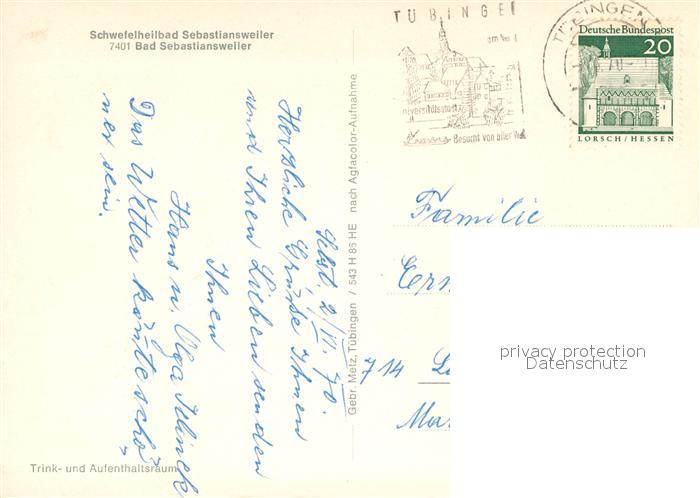 Schwefelheilbad Sebastiansweiler
7401 Bad Sebastiansweiler
TÜBINGEN
am Ne
Universitätsstadt
Besucht von aller Welt
TÜBINGEN
70
Deutsche Bundespost
20
LORSCH / HESSEN
2/VI. 70.
Herzliche Grüße Ihnen
und Ihren Lieben senden
Ihnen
Hans u. Olga
Das Wetter könnte schö
ner sein.
Gebr. Metz, Tübingen / 543 H 86 HE nach Agfacolor-Aufnahme
Familie
Ern
714 L
Ma
privacy protection
Datenschutz
Trink- und Aufenthaltsraum